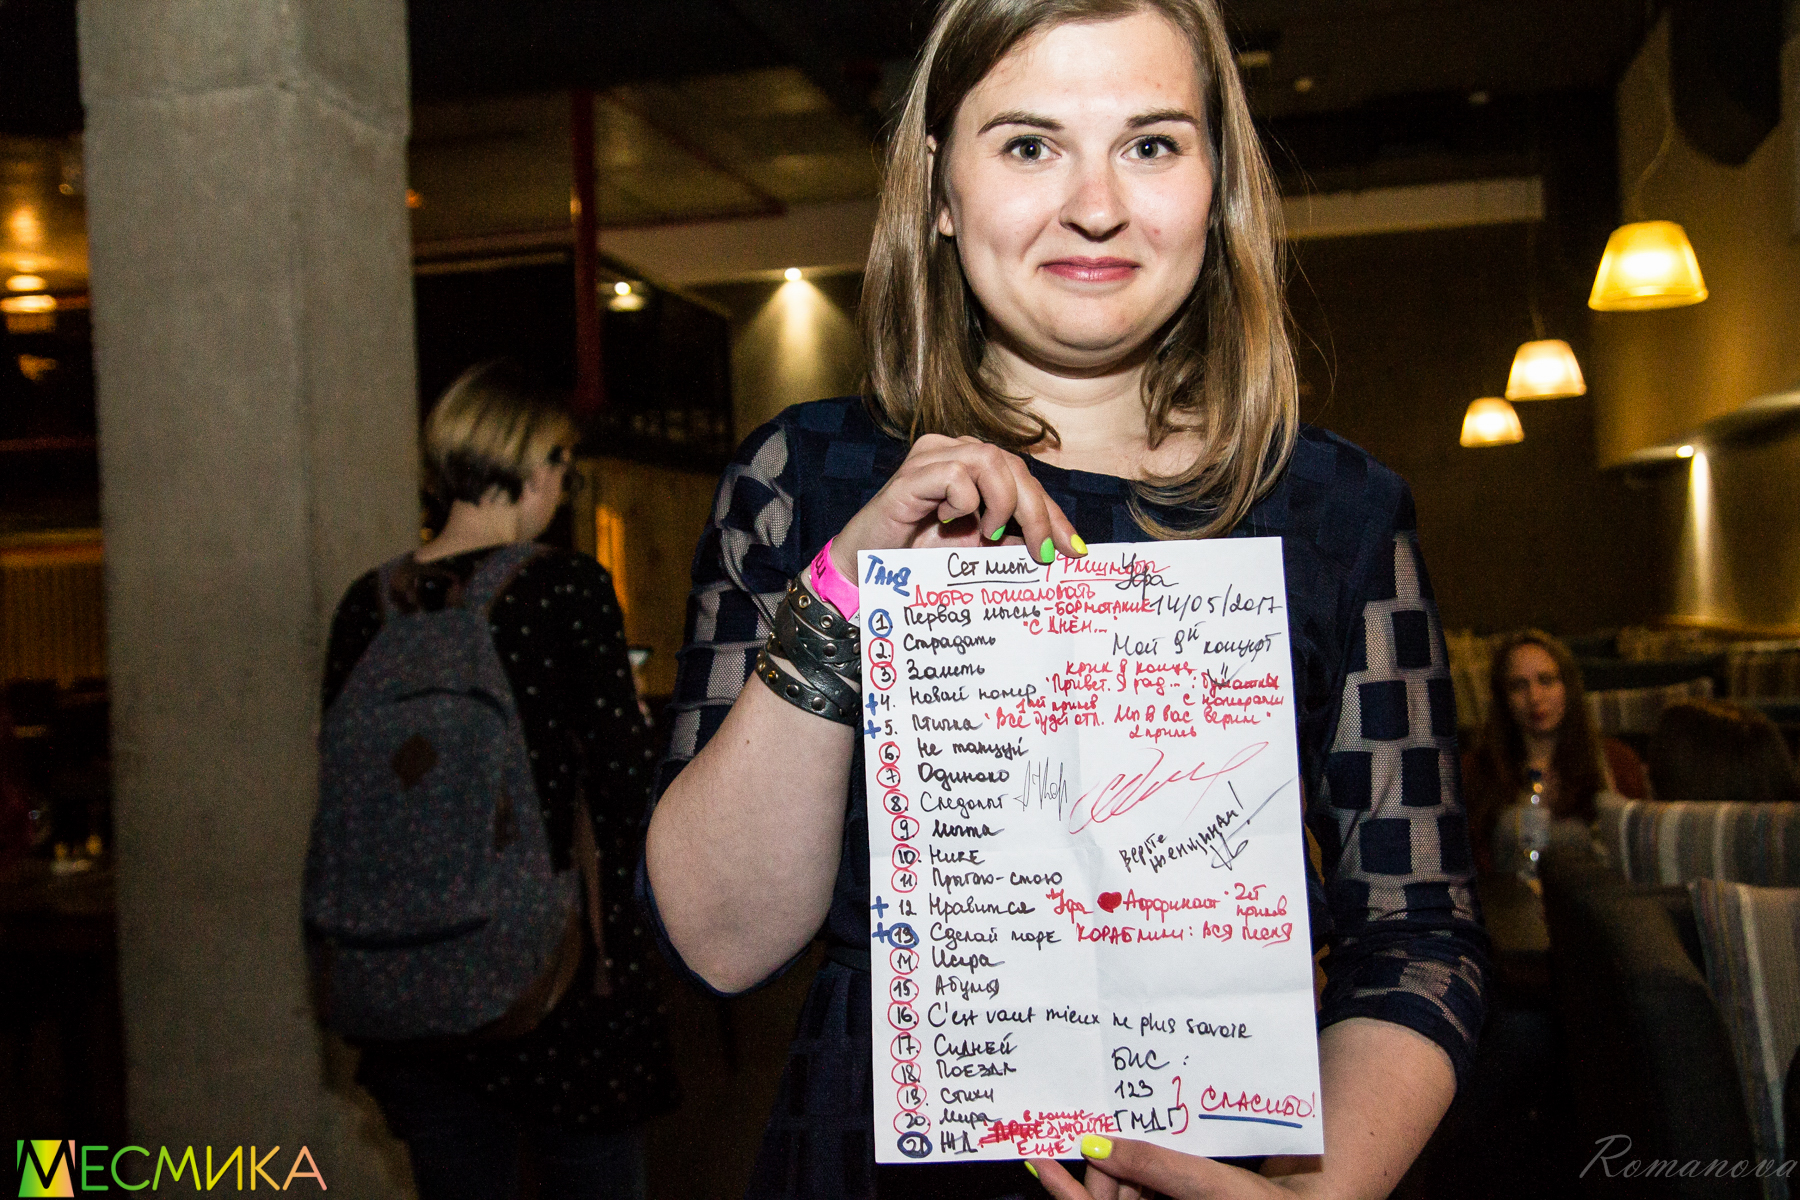 Таня
Сет лист / Флешмобы Уфа
Добро пожаловать
14/05/2017
1. Первая мысль - Бормотание
"С Днём..."
2. Страдать
Мой 9й концерт
3. Заметь
крик в конце
+4. Новый номер "Привет. Я рад..."
1ый припев
с номерами
+5. Птичка "Всё будет отл. Мы в вас верим"
2 припев
6. Не танцуй
7. Одиноко
8. Следопыт
9. Мечта
верьте
женщинам!
10. Нике
11. Прыгаю-стою
+12 Нравится "Уфа ❤ Аффинаж" 2ой
припев
+13. Сделай море кораблики: вся песня
14. Искра
15. Абуля
16. C'est vaut mieux ne plus savoir
17. Сидней
БИС:
18. Поезда
123
19. Стихи
Спасибо!
20. Мира
в конце
ГМДГ
21. ЖД. "Приезжайте
ещё"
МЕСМИКА
Romanova